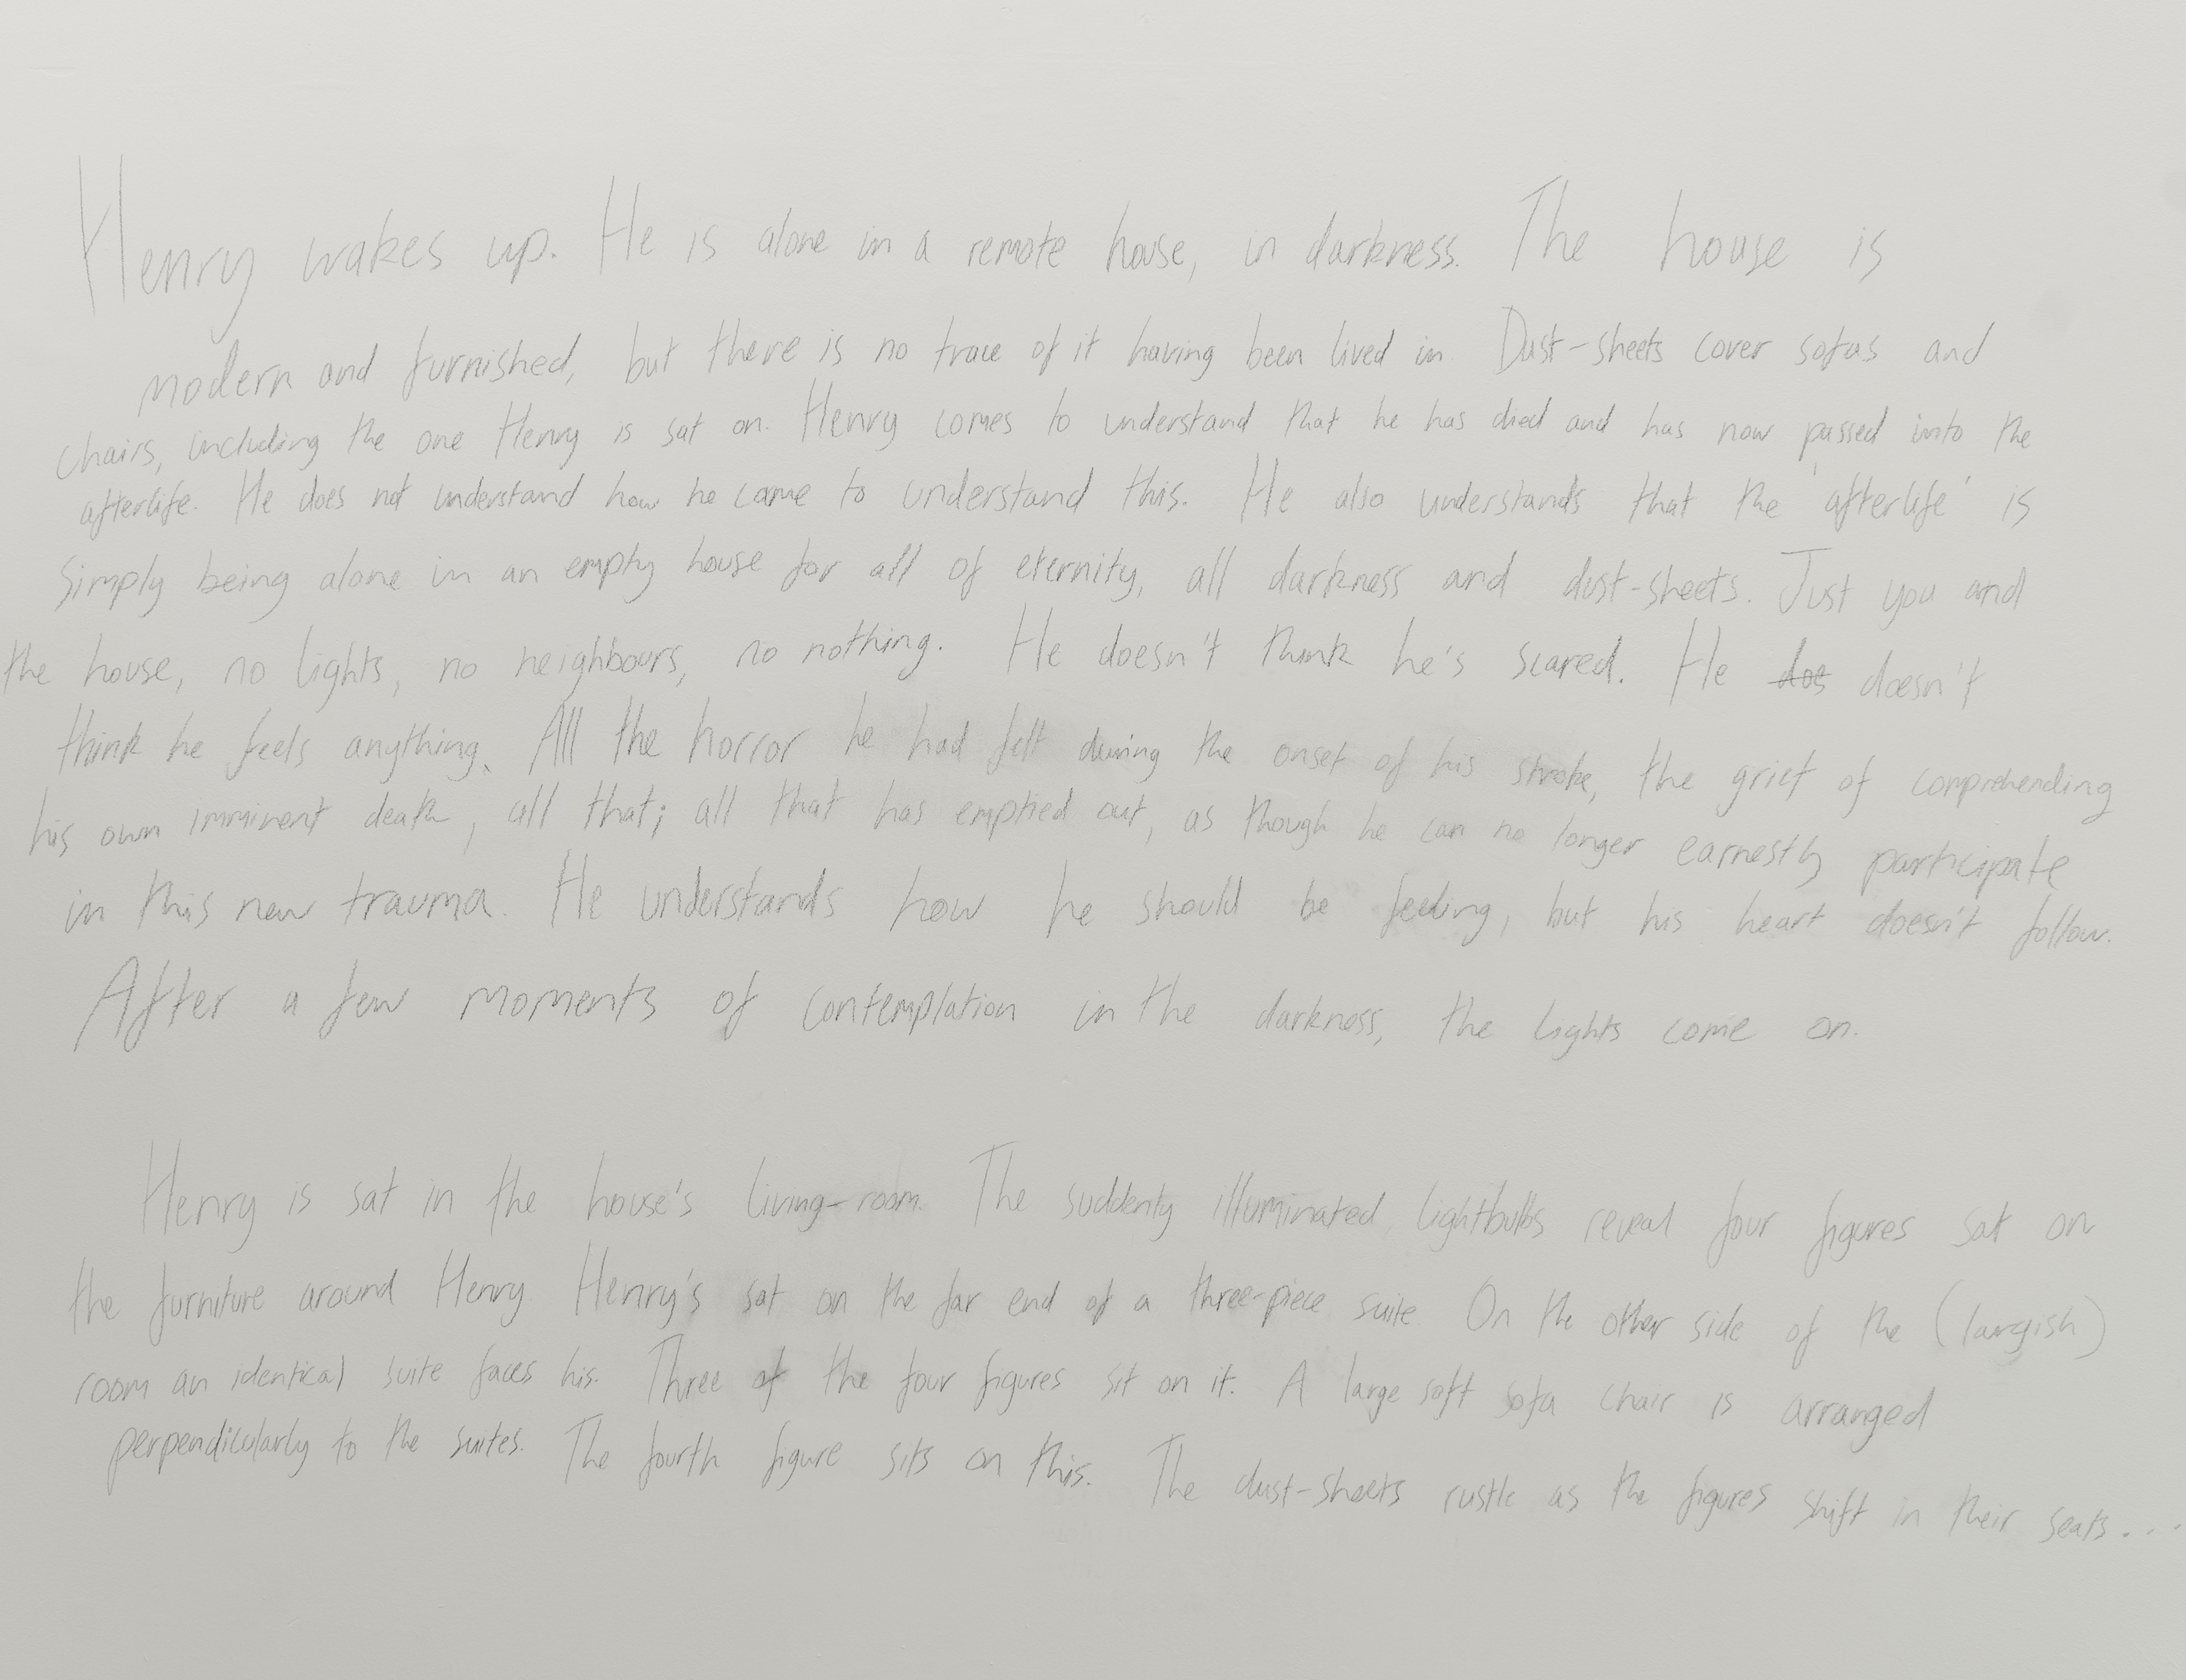 Henry wakes up. He is alone in a remote house, in darkness. The house is
modern and furnished, but there is no trace of it having been lived in. Dust-sheets cover sofas and
chairs, including the one Henry is sat on. Henry comes to understand that he has died and has now passed into the
afterlife. He does not understand how he came to understand this. He also understands that the 'afterlife' is
simply being alone in an empty house for all of eternity, all darkness and dust-sheets. Just you and
the house, no lights, no neighbours, no nothing. He doesn't think he's scared. He does doesn't
think he feels anything. All the horror he had felt during the onset of his stroke, the grief of comprehending
his own imminent death, all that; all that has emptied out, as though he can no longer earnestly participate
in this new trauma. He understands how he should be feeling, but his heart doesn't follow.
After a few moments of contemplation in the darkness, the lights come on.
Henry is sat in the house's living-room. The suddenly illuminated lightbulbs reveal four figures sat on
the furniture around Henry. Henry's sat on the far end of a three-piece suite. On the other side of the (largish)
room an identical suite faces his. Three of the four figures sit on it. A large soft sofa chair is arranged
perpendicularly to the suites. The fourth figure sits on this. The dust-sheets rustle as the figures shift in their seats...